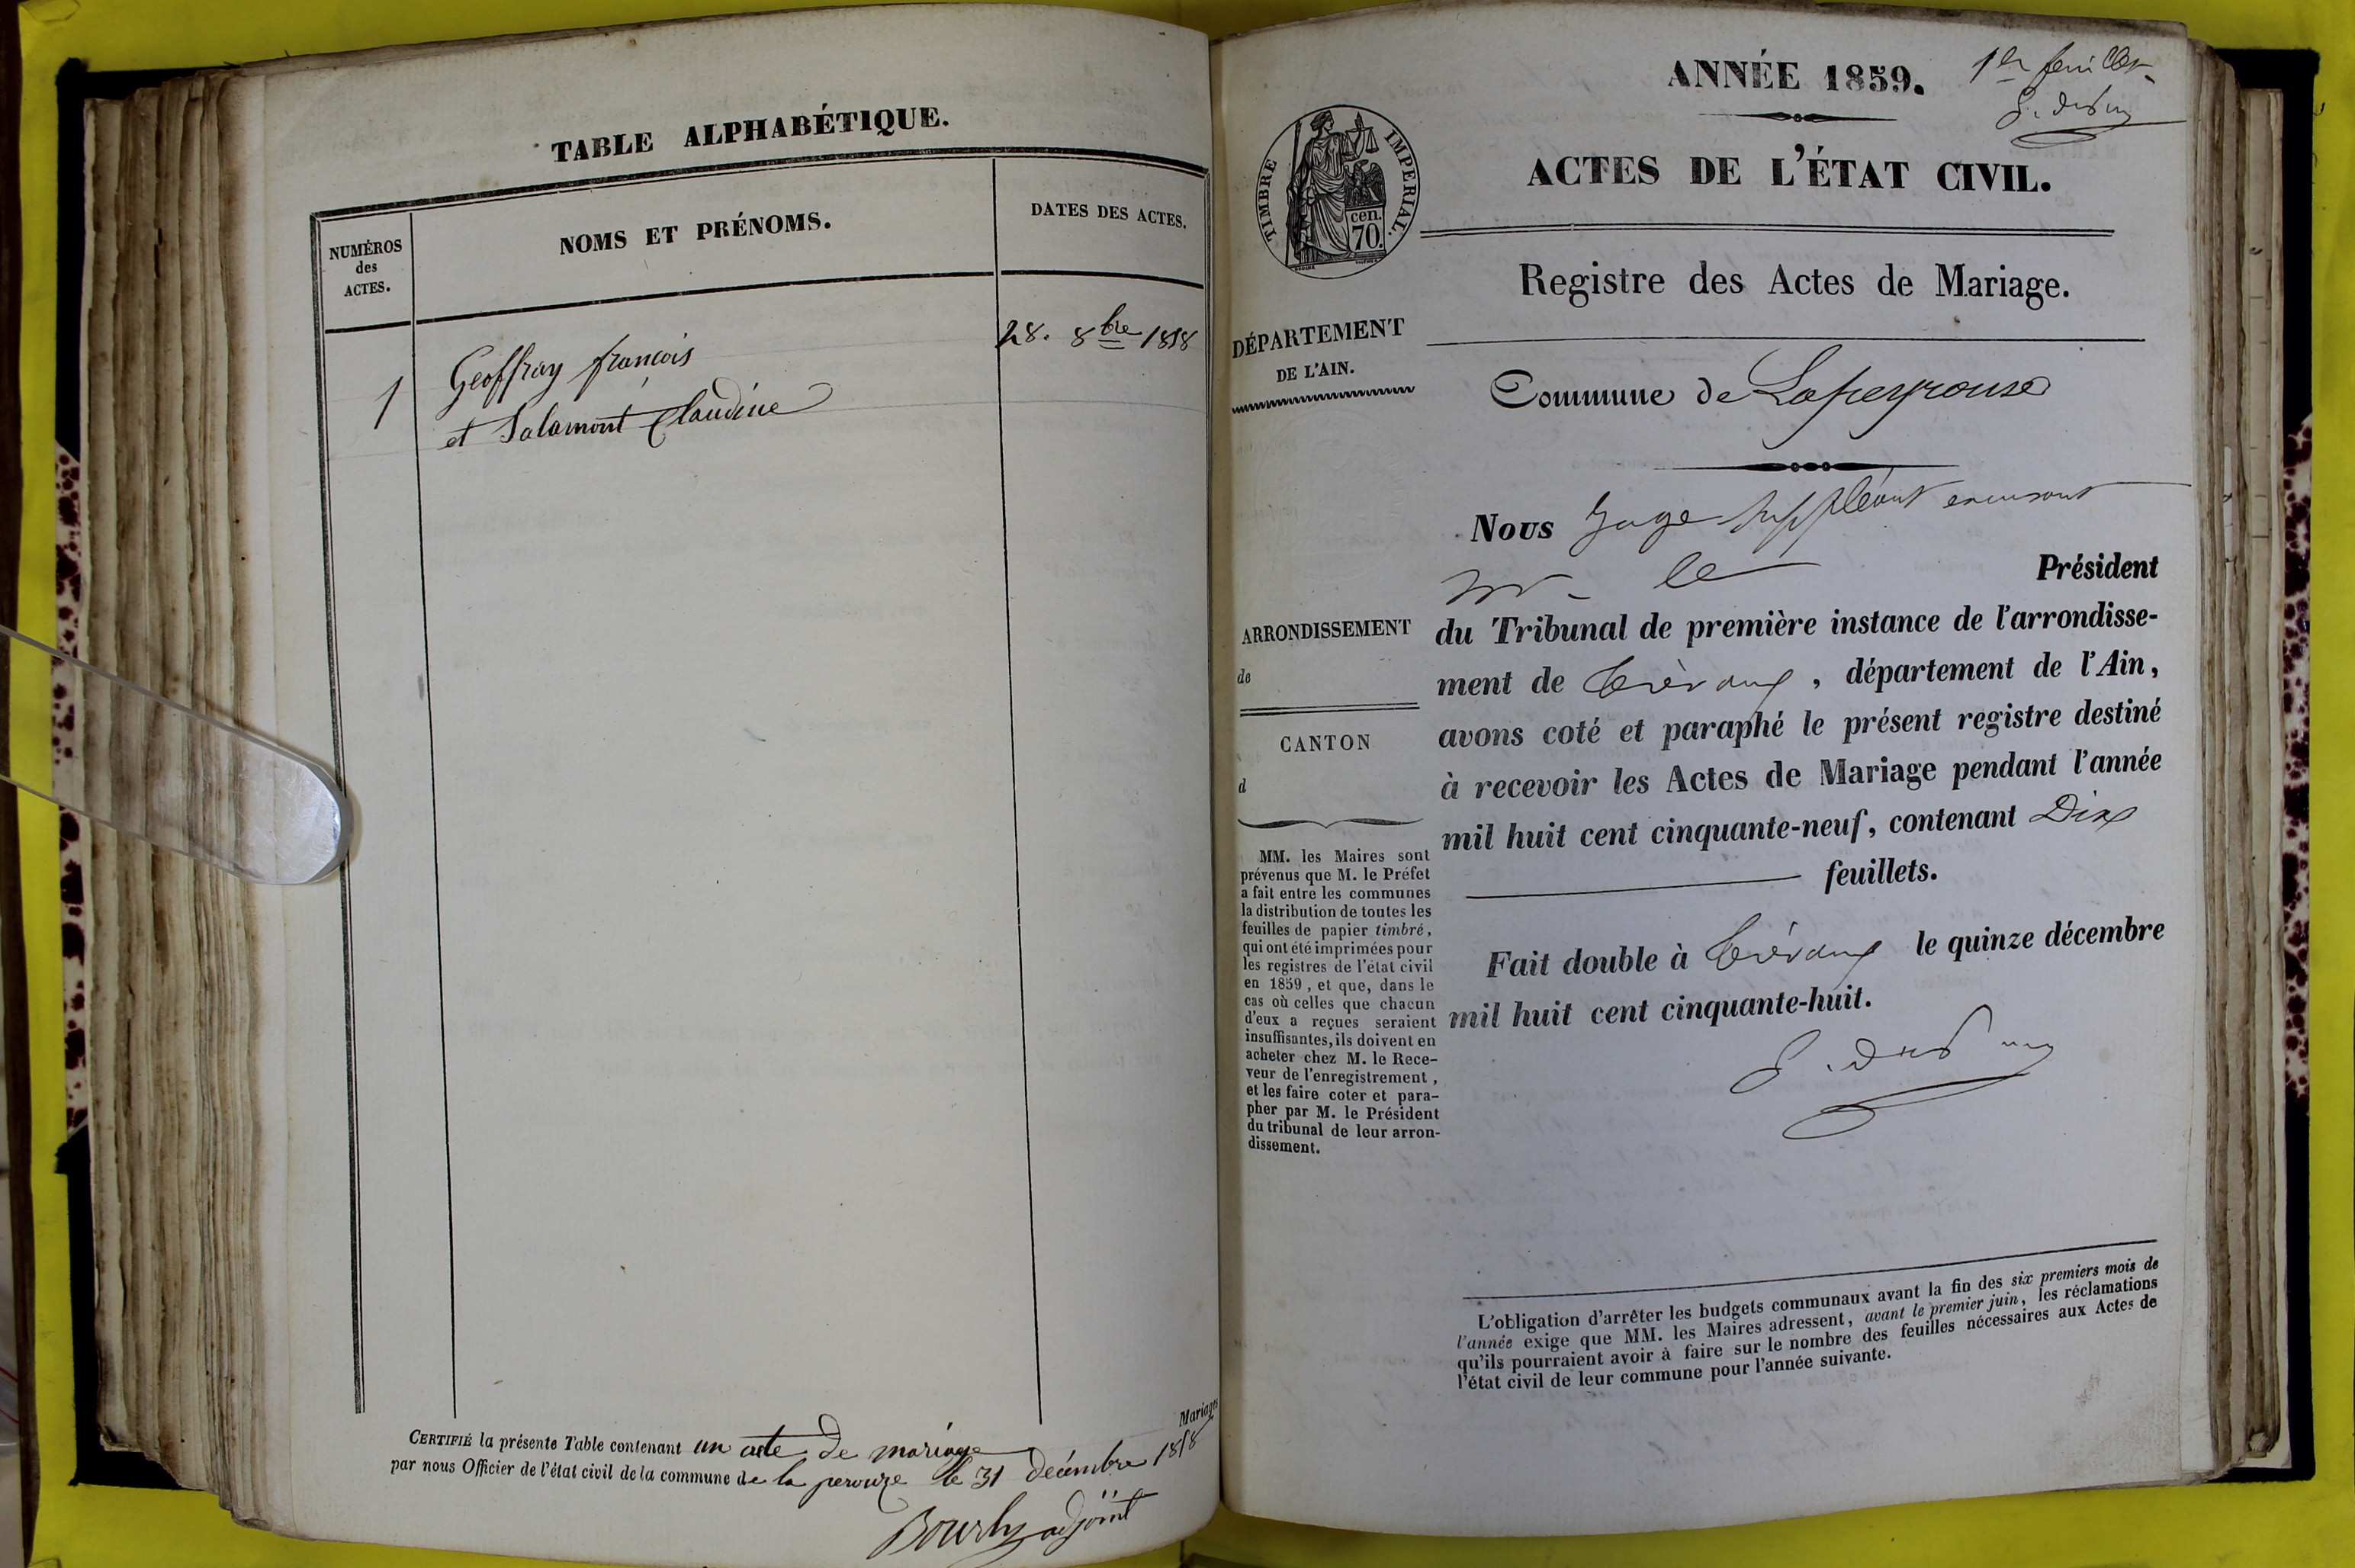 TABLE ALPHABÉTIQUE.
NUMÉROS
des
ACTES.
NOMS ET PRÉNOMS.
DATES DES ACTES.
1
Geoffray francois
et Salamont Claudine
28. 8bre 1858
Mariages
CERTIFIÉ la présente Table contenant un acte de mariage
par nous Officier de l'état civil de la commune de la perouze le 31 décembre 1858
adjoint
ANNÉE 1859.
1er feuillet
ACTES DE L'ÉTAT CIVIL.
TIMBRE IMPERIAL.
cen.
70.
Registre des Actes de Mariage.
DÉPARTEMENT
DE L'AIN.
Commune de Lapeyrouse
Nous Juge Suppléant
mr le Président
ARRONDISSEMENT
de
CANTON
d
du Tribunal de première instance de l'arrondisse-
ment de Trévoux, département de l'Ain,
avons coté et paraphé le présent registre destiné
à recevoir les Actes de Mariage pendant l'année
mil huit cent cinquante-neuf, contenant Dix
feuillets.
Fait double à Trévoux le quinze décembre
mil huit cent cinquante-huit.
MM. les Maires sont
prévenus que M. le Préfet
a fait entre les communes
la distribution de toutes les
feuilles de papier timbré,
qui ont été imprimées pour
les registres de l'état civil
en 1859, et que, dans le
cas où celles que chacun
d'eux a reçues seraient
insuffisantes, ils doivent en
acheter chez M. le Rece-
veur de l'enregistrement,
et les faire coter et para-
pher par M. le Président
du tribunal de leur arron-
dissement.
L'obligation d'arrêter les budgets communaux avant la fin des six premiers mois de
l'année exige que MM. les Maires adressent, avant le premier juin, les réclamations
qu'ils pourraient avoir à faire sur le nombre des feuilles nécessaires aux Actes de
l'état civil de leur commune pour l'année suivante.